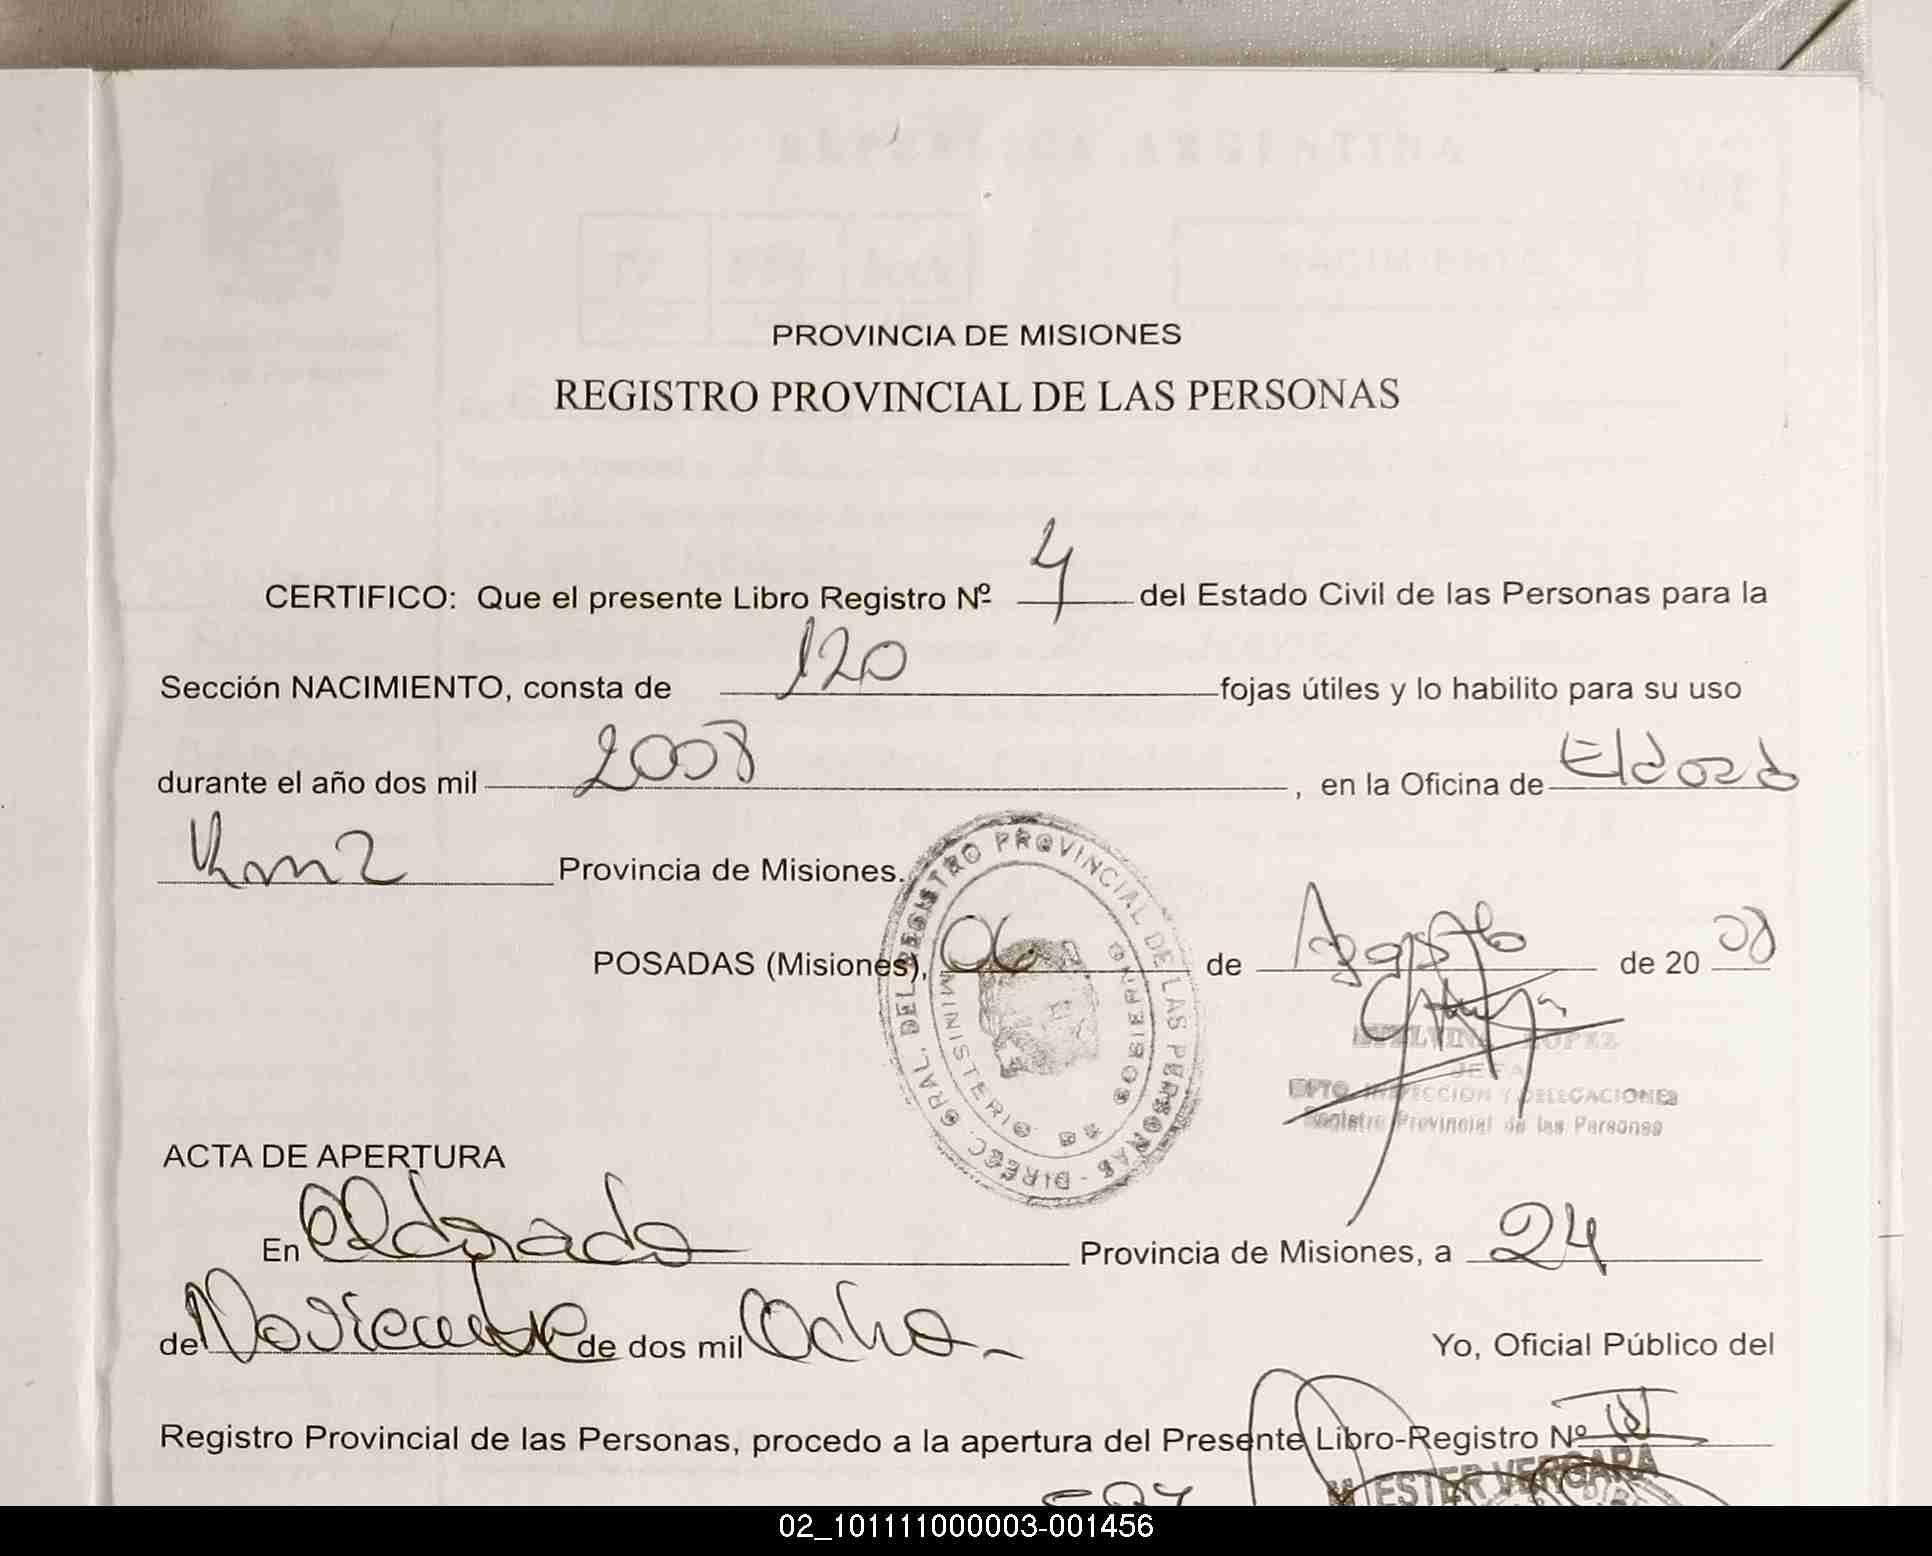 REPUBLICA ARGENTINA
NACIMIENTO
PROVINCIA DE MISIONES
REGISTRO PROVINCIAL DE LAS PERSONAS
CERTIFICO: Que el presente Libro Registro Nº 4 del Estado Civil de las Personas para la
Sección NACIMIENTO, consta de 120 fojas útiles y lo habilito para su uso
durante el año dos mil 2008, en la Oficina de Eldorado
Km 2 Provincia de Misiones.
POSADAS (Misiones), 06 de Agosto de 2008
DIREC. GRAL. DEL REGISTRO PROVINCIAL DE LAS PERSONAS
MINISTERIO DE GOBIERNO
LOPEZ
JEFA
DPTO. INSPECCION Y DELEGACIONES
Registro Provincial de las Personas
ACTA DE APERTURA
En Eldorado Provincia de Misiones, a 24
de Noviembre de dos mil Ocho.- Yo, Oficial Público del
Registro Provincial de las Personas, procedo a la apertura del Presente Libro-Registro Nº IV
ESTER VERGARA
02_101111000003-001456